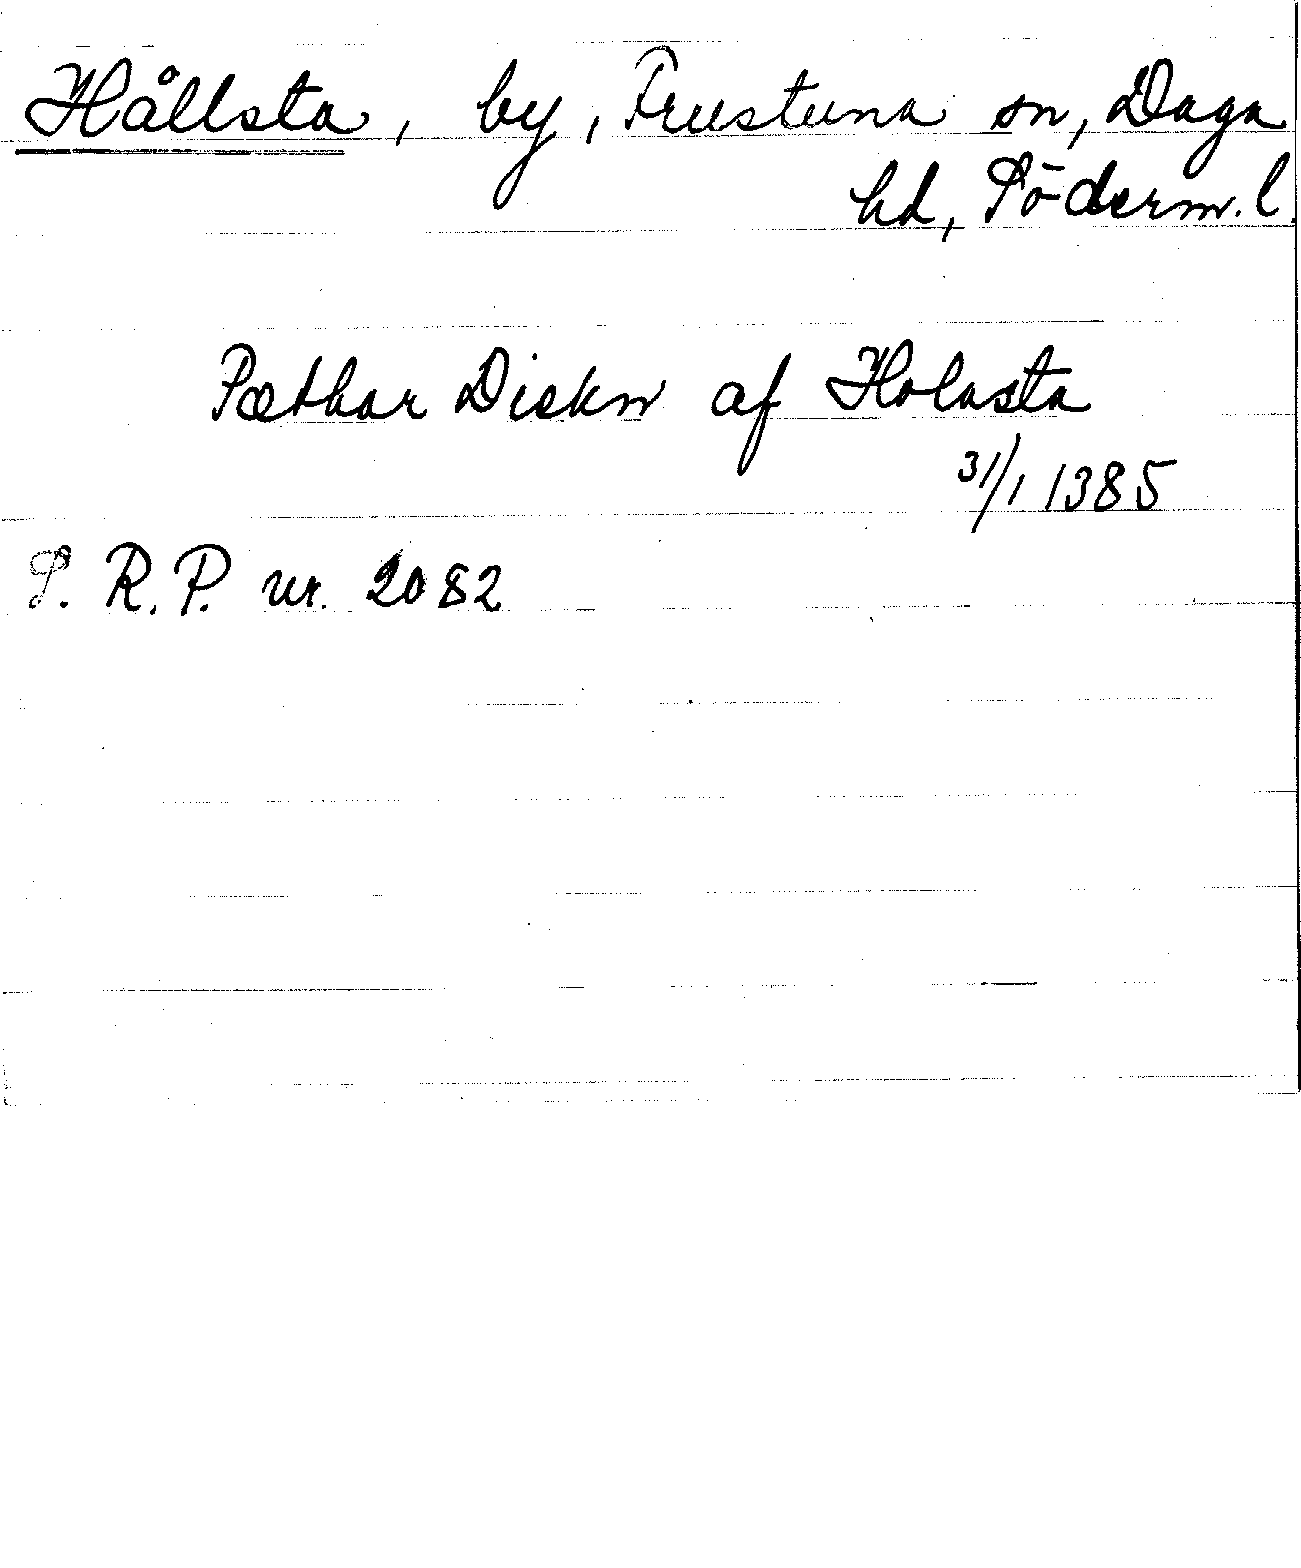 Hållsta, by, Frustuna sn, Daga
hd, Söderm. l.
Pæthar Diekn af Holasta
31/1 1385
S. R. P. nr. 2082